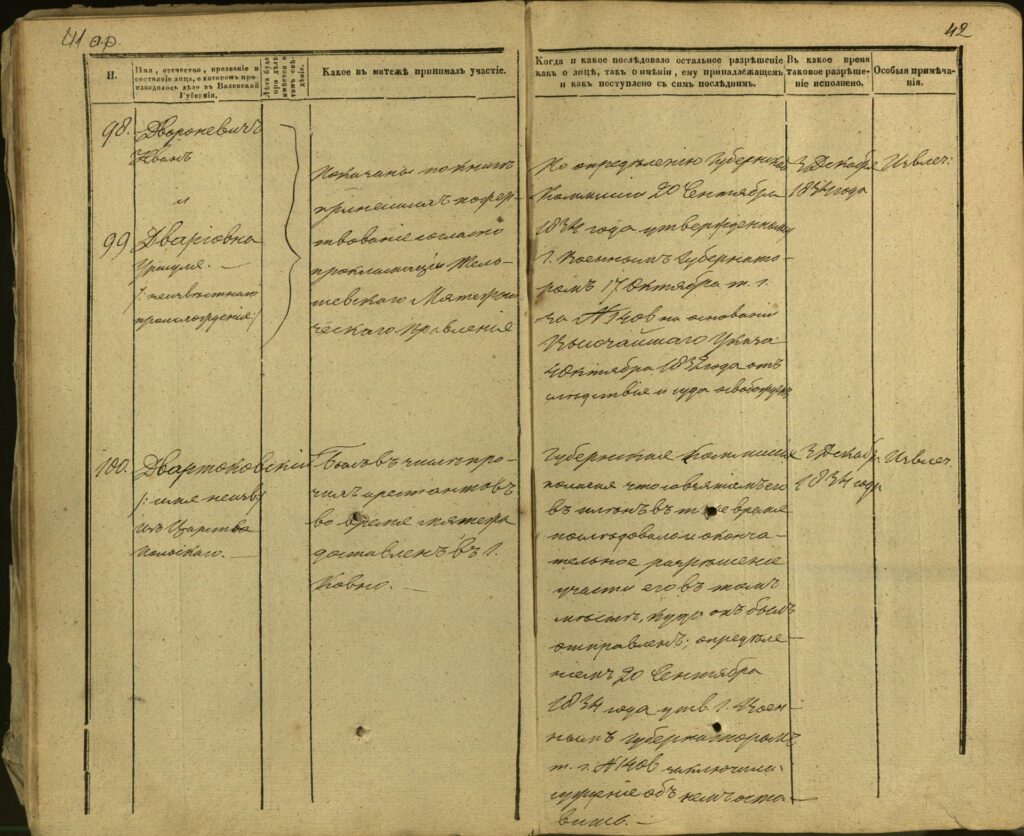 41 об.
42
Н.
Имя, отечество, прозвание и
состояніе лица, о которомъ про-
изводилось дѣло въ Виленской
Губерніи.
Какое въ мятежѣ принималъ участіе.
Когда и какое послѣдовало остальное разрѣшеніе
какъ о лицѣ, такъ о имѣніи, ему принадлежащемъ
и какъ поступлено съ симъ послѣднимъ.
Въ какое время
таковое разрѣше-
ніе исполнено.
Особыя примѣча-
нія.
98.
Двороневичъ
Иванъ
и
99
Дваріовна
Уршуля. —
/: неизвѣстнаго
происхожденія:/
Показаны по книгѣ
пожер-
твованіе согласно
прокламаціи Тель-
шевскаго Мятежни-
ческаго правленія
По опредѣленію Губернской
Коммисіи 20 Сентября
1834 года утвержденному
Г. Военнымъ Губернато-
ромъ 17 Октября т. г.
за № 1408 на основаніи
Высочайшаго Указа
4 Октября 1832 года отъ
слѣдствія и суда освобождены
3 Декабря
1834 года
Извлеч:
100.
Двартоковскій
/: имя неизв:/
изъ Царства
Польскаго. —
Былъ въ числѣ про-
чихъ арестантовъ
во время мятежа
доставленъ въ г.
Ковно. —
Губернская Коммисія
полагая что о взятіи его
въ плѣнъ въ то же время
послѣдовало и оконча-
тельное разрѣшеніе
участи его въ томъ
мѣстѣ, куда онъ былъ
отправленъ; опредѣле-
ніемъ 20 Сентября
1834 года утв. Г. Воен-
нымъ Губернаторомъ
т. г. № 1408 заключила
сужденіе объ немъ оста-
вить. —
3 Декабр
1834 года
Извлеч.